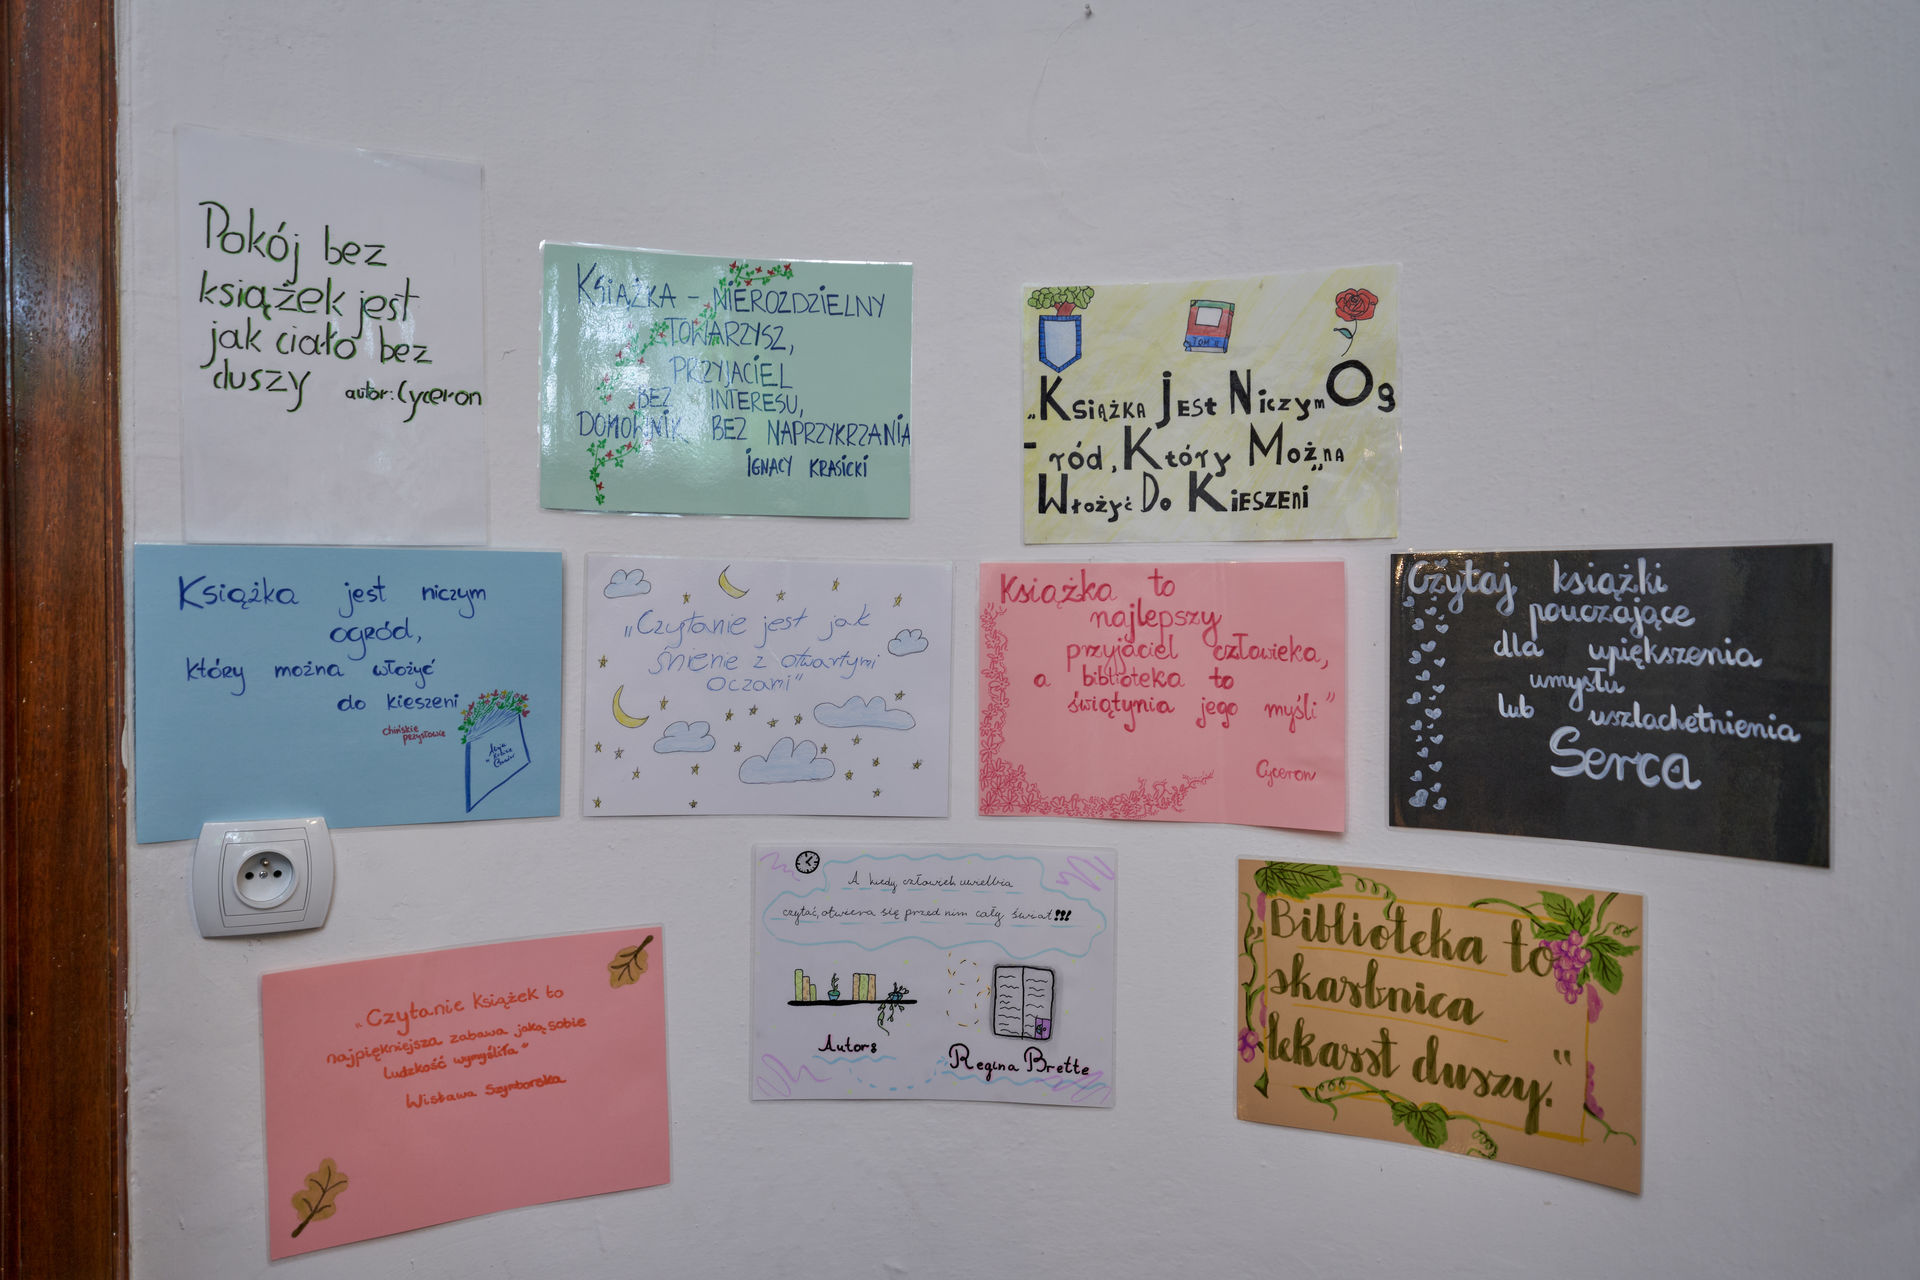 Pokój bez
książek jest
jak ciało bez
duszy autor: Cyceron
KSIĄŻKA - NIEROZDZIELNY
TOWARZYSZ,
PRZYJACIEL
BEZ INTERESU,
DOMOWNIK BEZ NAPRZYKRZANIA
IGNACY KRASICKI
TOM II
„Książka Jest Niczym Og
- ród, Który Możną
Włożyć Do Kieszeni
Książka jest niczym
ogród,
który można włożyć
do kieszeni
chińskie
przysłowie
„Czytanie jest jak
śnienie z otwartymi
oczami"
Książka to
najlepszy
przyjaciel człowieka,
a biblioteka to
świątynia jego myśli"
Cyceron
Czytaj książki
pouczające
dla upiększenia
umysłu
lub uszlachetnienia
Serca
„Czytanie książek to
najpiękniejsza zabawa jaką sobie
ludzkość wymyśliła"
Wisława Szymborska
A kiedy człowiek uwielbia
czytać, otwiera się przed nim cały świat!!!
Autors
Regina Brette
„Biblioteka to
skarbnica
lekarst duszy."